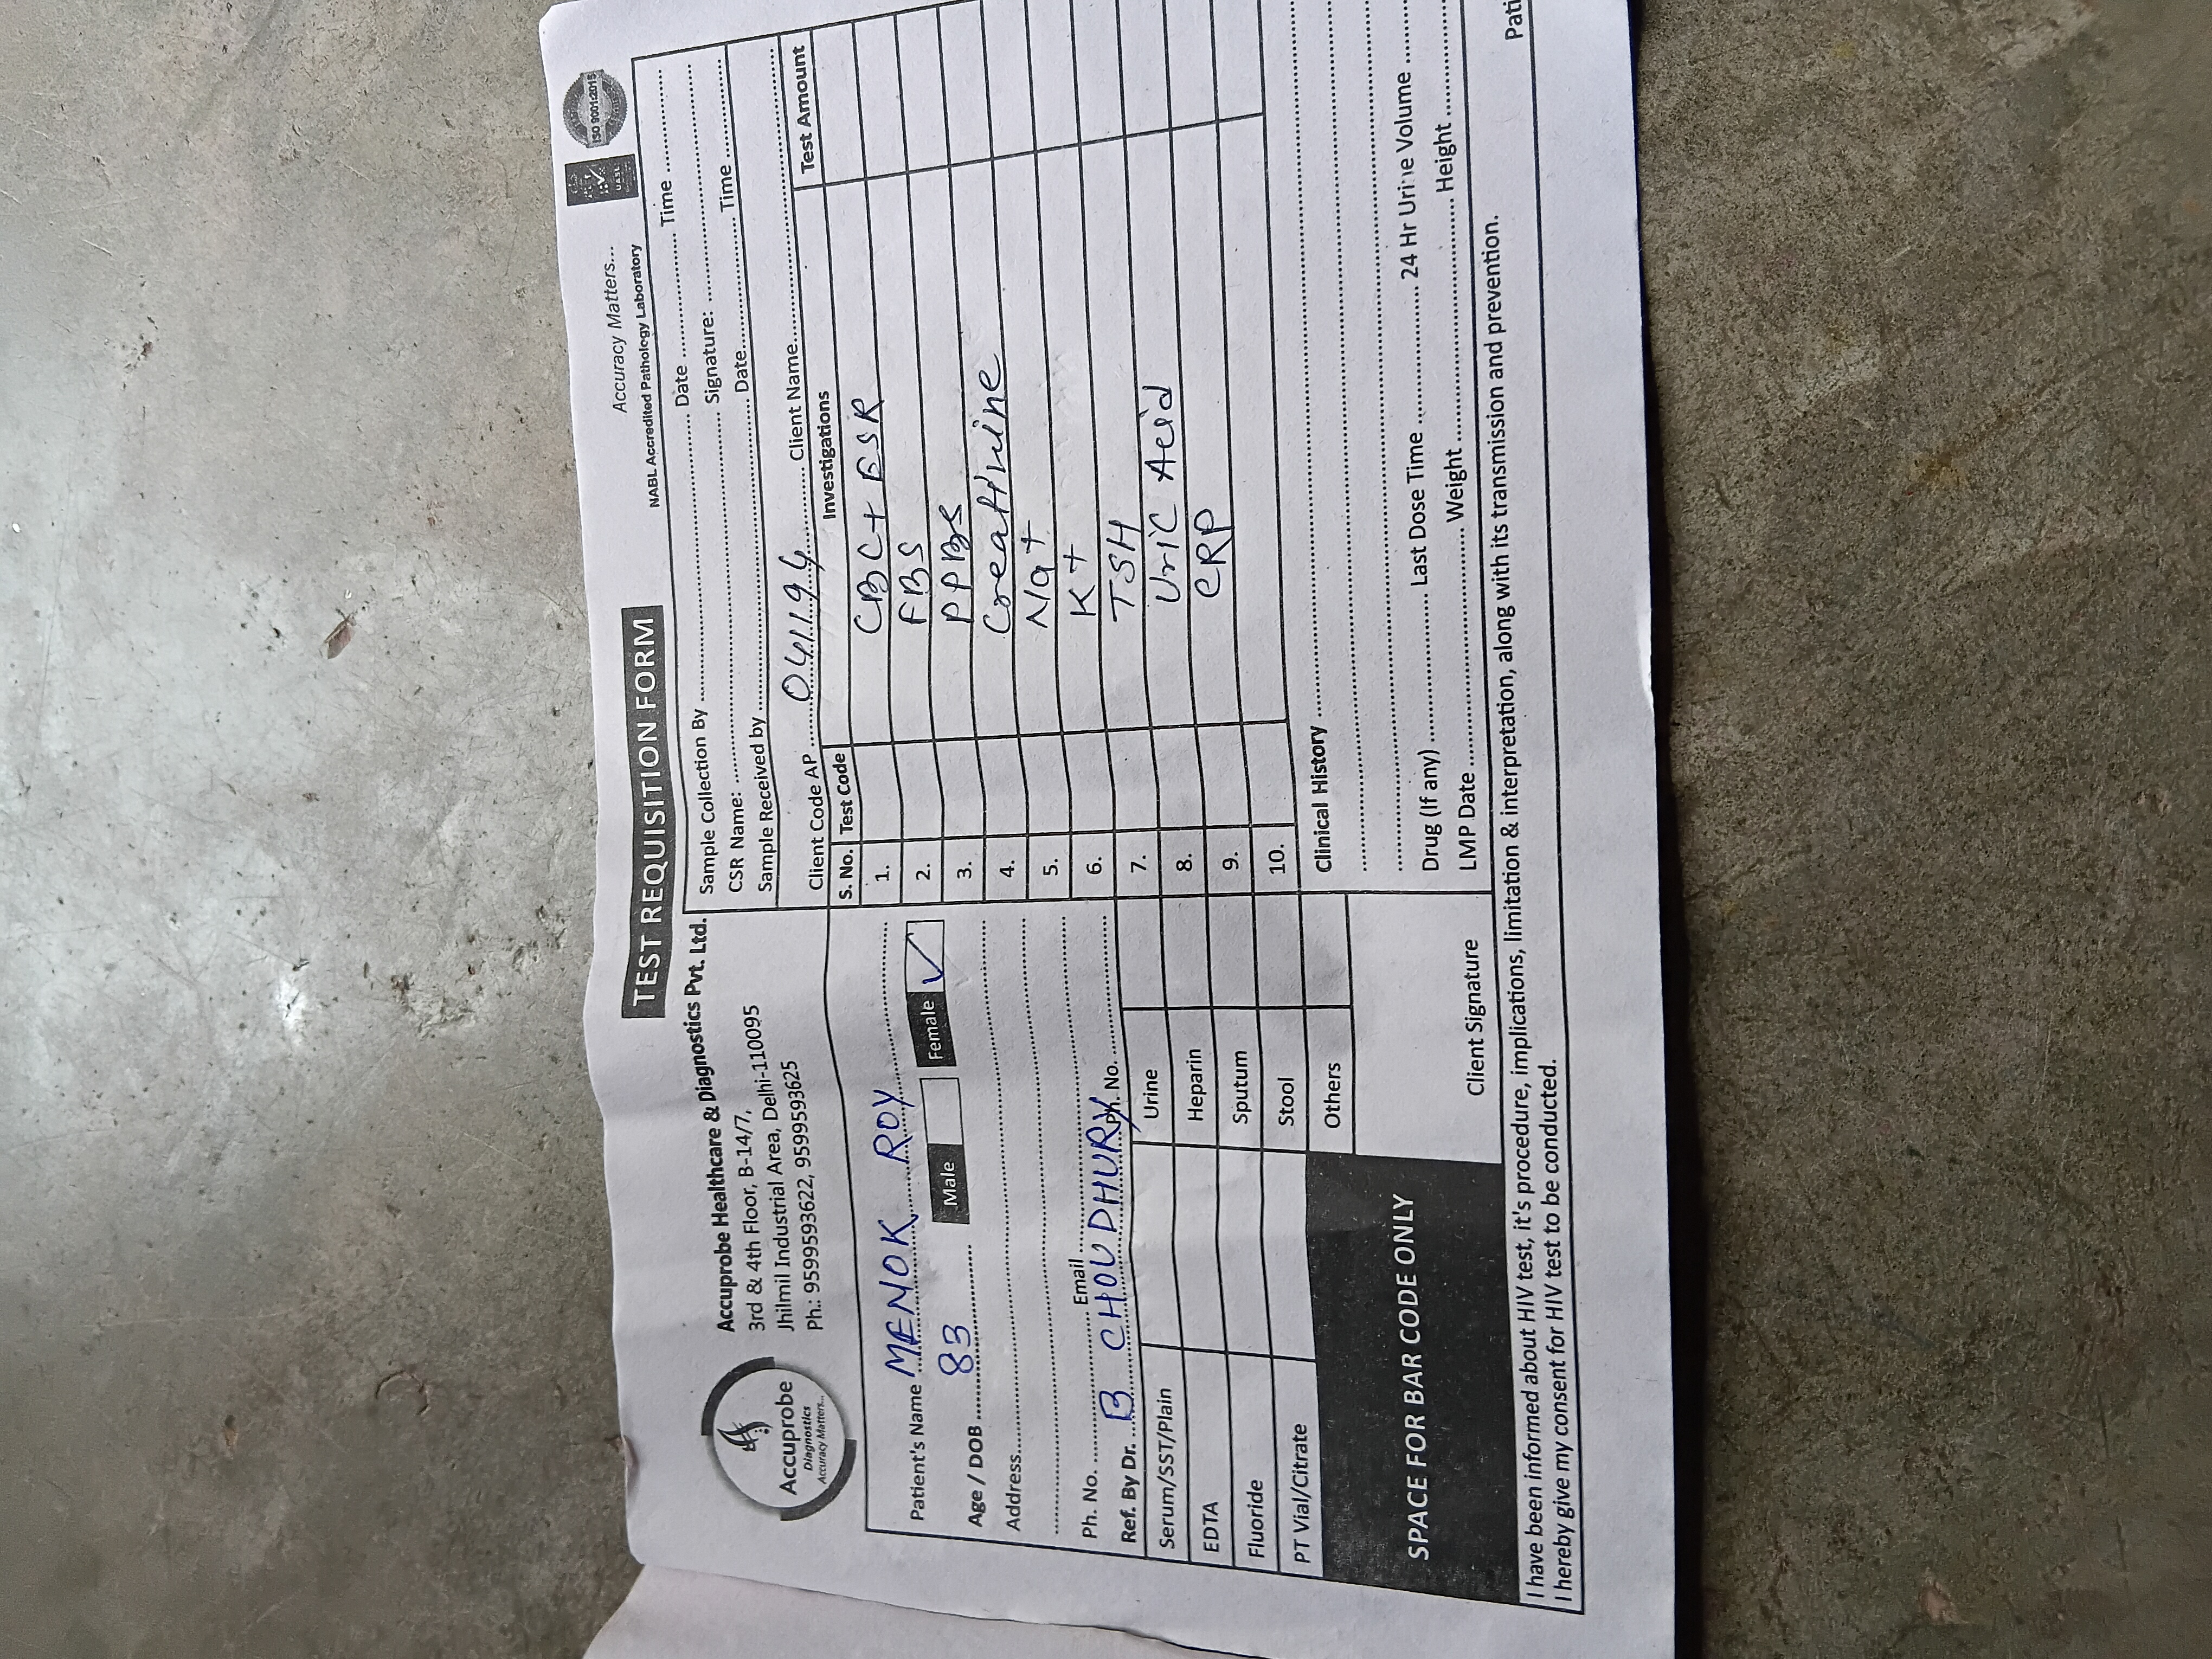 TEST REQUISITION FORM
Accuracy Matters...
NABL Accredited Pathology Laboratory
ISO 9001:2015
UASL
Accuprobe
Diagnostics
Accuracy Matters...
Accuprobe Healthcare & Diagnostics Pvt. Ltd.
3rd & 4th Floor, B-14/7,
Jhilmil Industrial Area, Delhi-110095
Ph.: 9599593622, 9599593625
Sample Collection By Date Time
CSR Name: Signature:
Sample Received by Date Time
Patient's Name MENOK ROY
Age / DOB 83 Male Female ✓
Address
Ph. No. Email
Ref. By Dr. B CHOUDHURY Ph. No.
Serum/SST/Plain Urine
EDTA Heparin
Fluoride Sputum
PT Vial/Citrate Stool
Others
SPACE FOR BAR CODE ONLY
Client Signature
Client Code AP 041194 Client Name
S. No. Test Code Investigations Test Amount
1. CBC+ ESR
2. FBS
3. PPBS
4. Creattinine
5. Na+
6. K+
7. TSH
8. Uric Acid
9. CRP
10.
Clinical History
Drug (If any) Last Dose Time 24 Hr Urine Volume
LMP Date Weight Height
I have been informed about HIV test, it's procedure, implications, limitation & interpretation, along with its transmission and prevention.
I hereby give my consent for HIV test to be conducted.